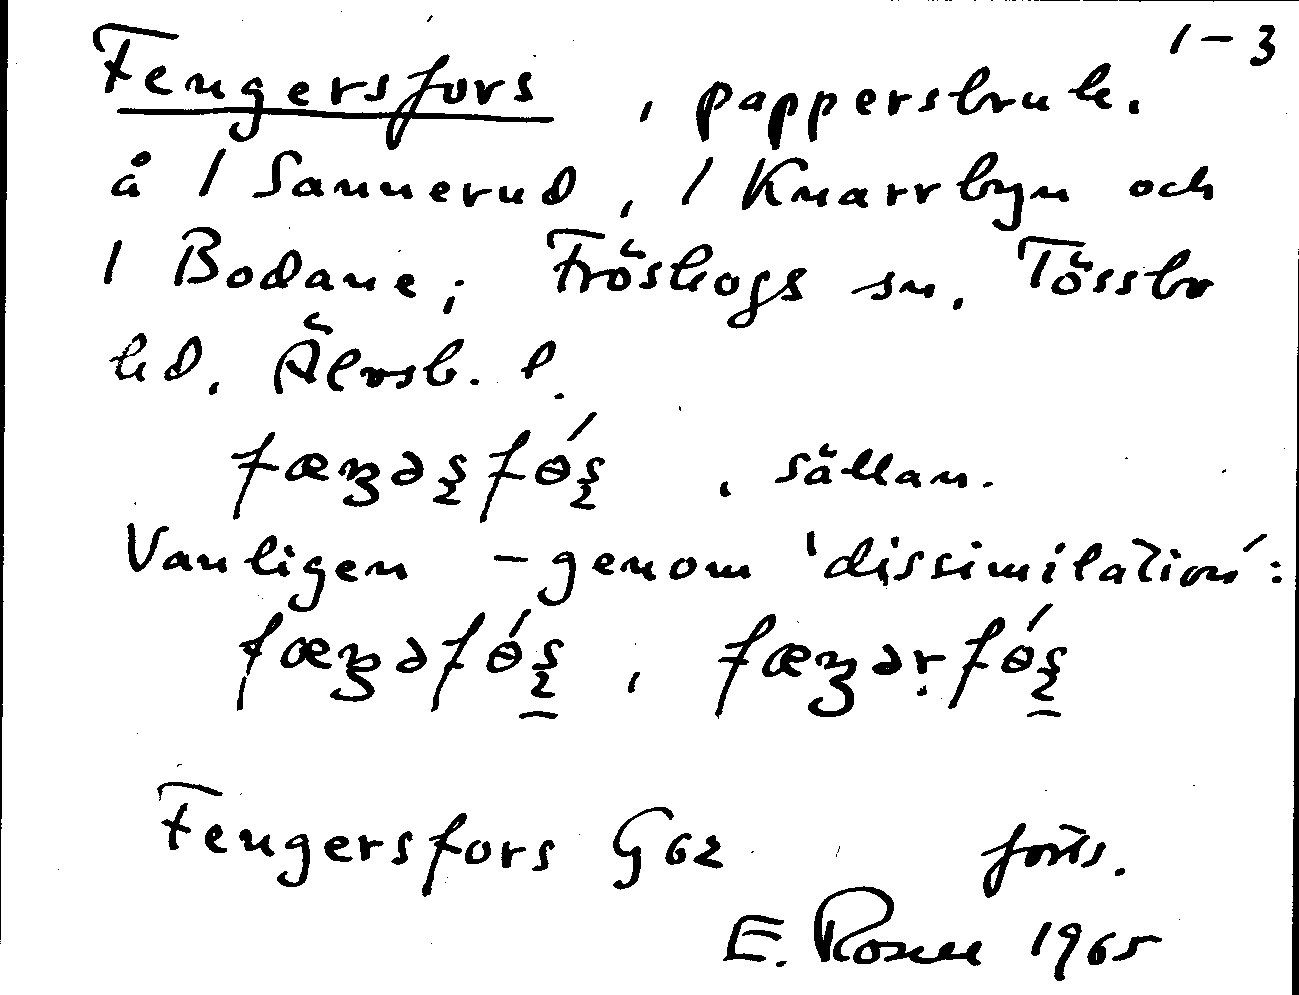 1-3
Fengersfors, pappersbruk.
å 1 Sannerud, 1 Knarrbyn och
1 Bodane; Fröskogs sn. Tössbo
hd. Älvsb. l.
, sällan.
Vanligen - genom 'dissimilation':
Fengersfors G62 forts.
E. Rosell 1965